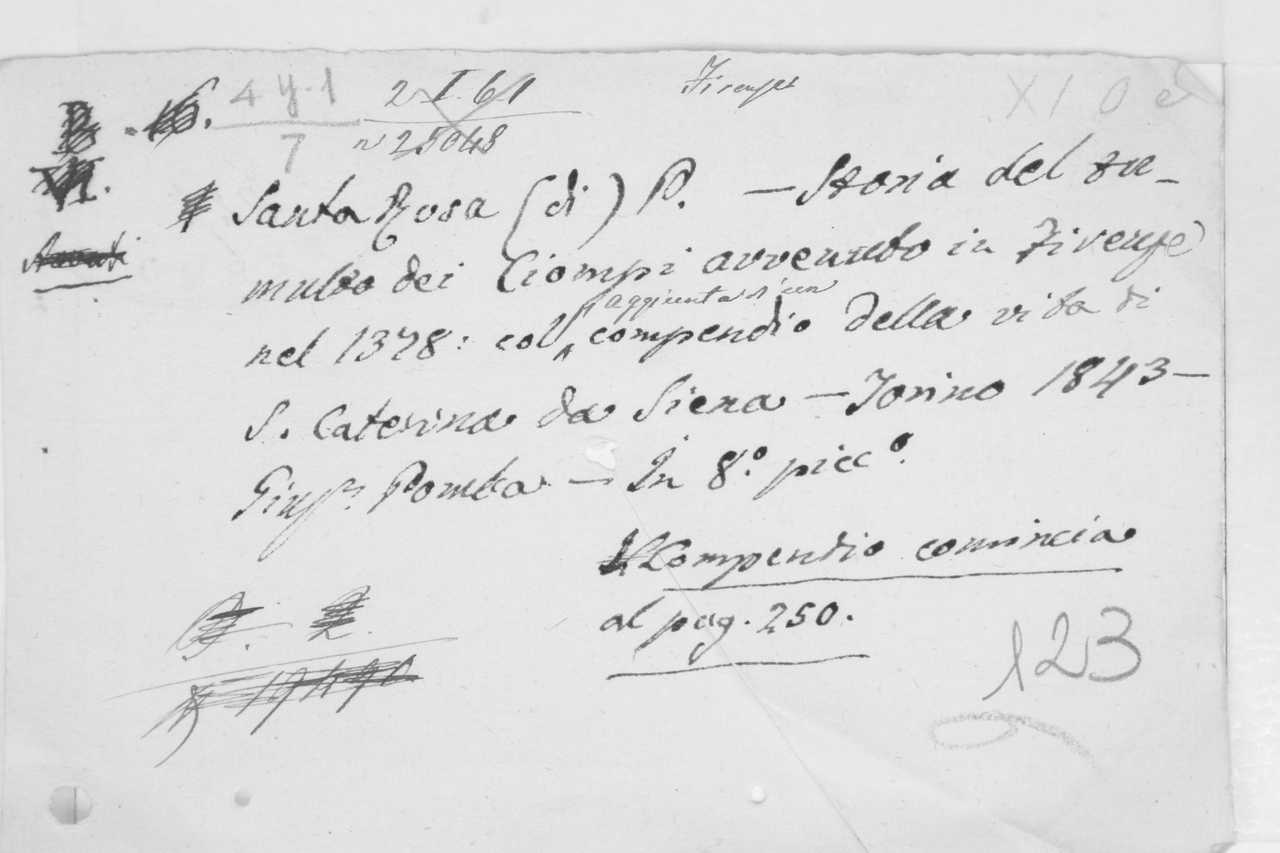 4 y. 1 2 I. 61 Firenze
7 n 25048
Santa Rosa (di) P. — Storia del tu-
multo dei Ciompi avvenuto in Firenze
nel 1378: coll'aggiunta d'un compendio della vita di
S. Caterina da Siena — Torino 1843 —
Gius.e Pomba — In 8.° picc.°
Compendio comincia
al pag. 250.
123